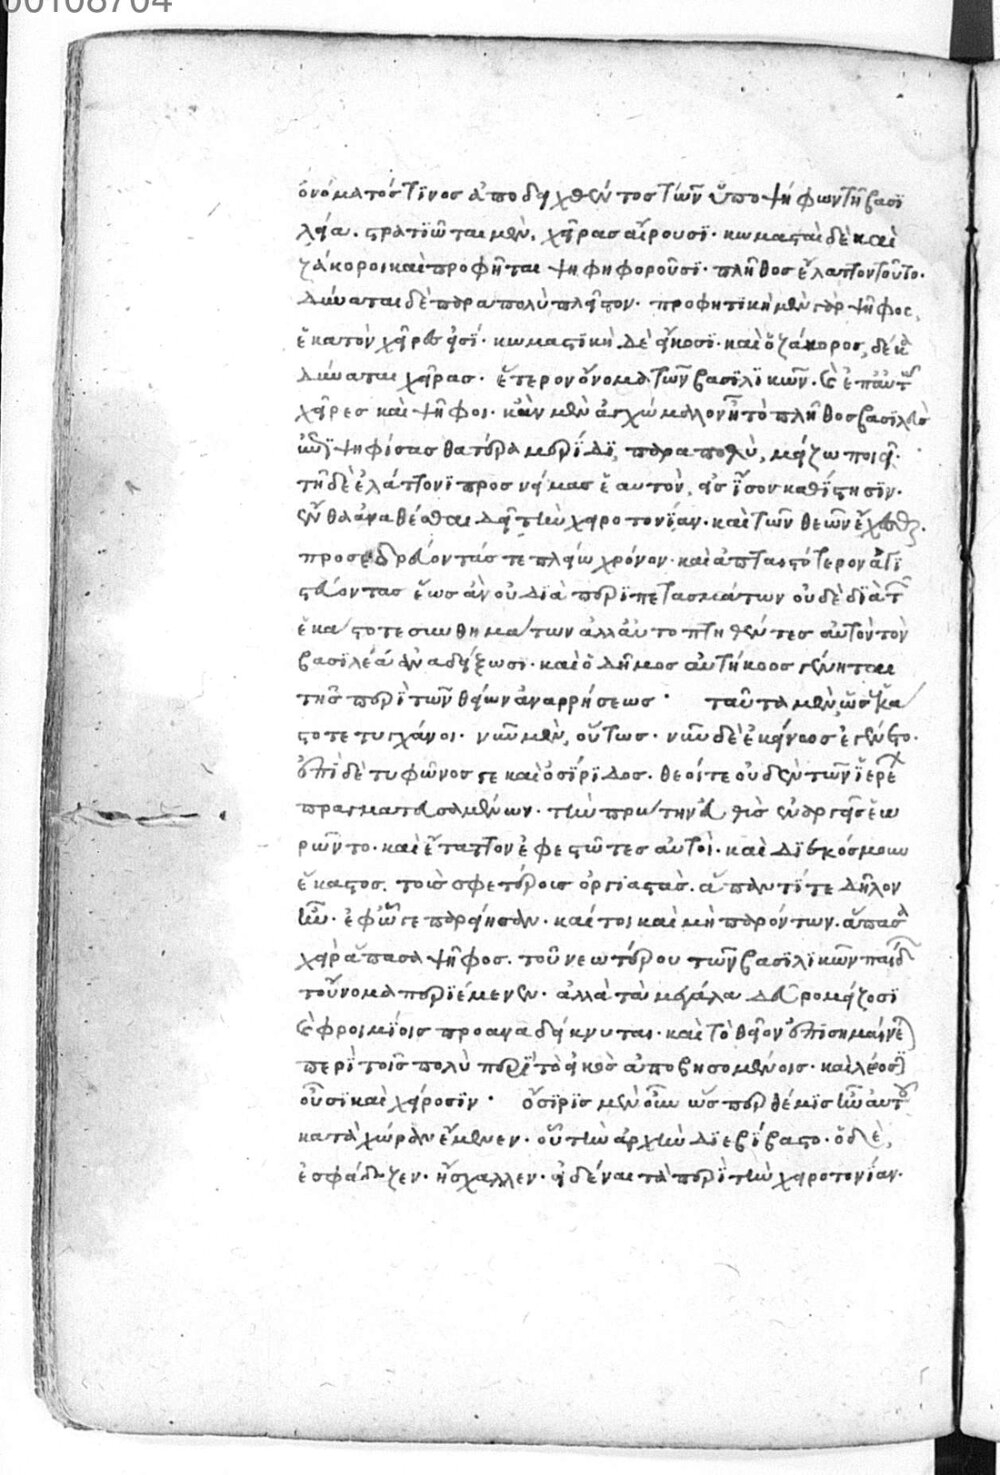 00108704
ὀνόματός τινος ἀποδειχθέντος τῶν ὑποψήφων τῇ βασι
λείᾳ. στρατιῶται μὲν, χεῖρας αἴρουσι· κωμασταὶ δὲ καὶ
ζάκοροι καὶ προφῆται ψηφηφοροῦσι· πλῆθος ἔλαττον τοῦτο·
δύναται δὲ παρὰ πολὺ πλεῖστον· προφητικὴ μὲν γὰρ ψῆφος,
ἑκατὸν χεῖρες εἰσί· κωμαστικὴ δὲ εἴκοσι· καὶ ὁ ζάκορος, δέκα
δύναται χεῖρας· ἕτερον ὄνομα τῶν βασιλικῶν· καὶ ἐπ' αὐτῷ
χεῖρες καὶ ψῆφοι· κἂν μὲν ἀγχώμαλλον ᾖ τὸ πλῆθος βασιλεὺς
ψηφίσασθατέρα μερίδι, παρὰ πολὺ, μείζω ποιεῖ·
τῇ δὲ ἐλάττονι προσνείμας ἑαυτὸν, εἰς ἴσον καθίστησιν·
ἔνθα ἀναθέσθαι δεῖ τὴν χειροτονίαν· καὶ τῶν θεῶν ἔχεσθαι·
προσεδρεύοντάς τε πλείω χρόνον· καὶ ἀπταιστότερον ἁγι
στεύοντας ἕως ἂν οὐ διὰ περιπετασμάτων οὐδὲ διὰ τῶν
ἑκάστοτε συνθημάτων ἀλλ' αὐτοπτηθέντες αὐτὸν τὸν
βασιλέα ἀναδείξωσι· καὶ ὁ δῆμος αὐτήκοος γένηται
τῆς περὶ τῶν θείων ἀναρρήσεως· ταῦτα μὲν, ὡς ἑκά
στοτε τυγχάνοι· νῦν μὲν, οὕτως· νῦν δὲ ἐκείνως ἐγένετο·
ἐπὶ δὲ τυφῶνος γε καὶ ὀσίριδος· θεοί τε οὐδὲν τῶν ἱερέων
πραγματευσαμένων· τὴν πρώτην εὐθὺς ἐναργεῖς ἑω
ρῶντο· καὶ ἔταττον ἐφεστῶτες αὐτοὶ· καὶ διεκόσμουν
ἕκαστος. τοὺς σφετέροις ὀργιαστὰς. ἅπαντί τε δῆλον
ἦν· ἐφ' ᾧ γε παρείησαν· καίτοι καὶ μὴ παρόντων. ἅπασα
χεὶρ ἅπασα ψῆφος. τοῦ νεωτέρου τῶν βασιλικῶν παίδων
τοὔνομα περιέμενεν· ἀλλὰ τὰ μεγάλα δεῦρο μείζοσι
καὶ φροιμίοις προαναδείκνυται· καὶ τὸ θεῖον ἐπισημαίνεται
περὶ τοῖς πολὺ περὶ τὸ εἰκὸς ἀποβησομένοις· καὶ λέοσι
οὖσι καὶ χείροσιν· ὄσιρις μὲν οὖν ὥσπερ θέμις ἦν αὐτοῦ
κατὰ χώραν ἔμενεν· οὗ τὴν ἀρχὴν διεβίβαστο· ὁ δὲ,
ἐσφάδαζεν· ἤσχαλλεν· εἰδέναι τὰ περὶ τὴν χειροτονίαν·